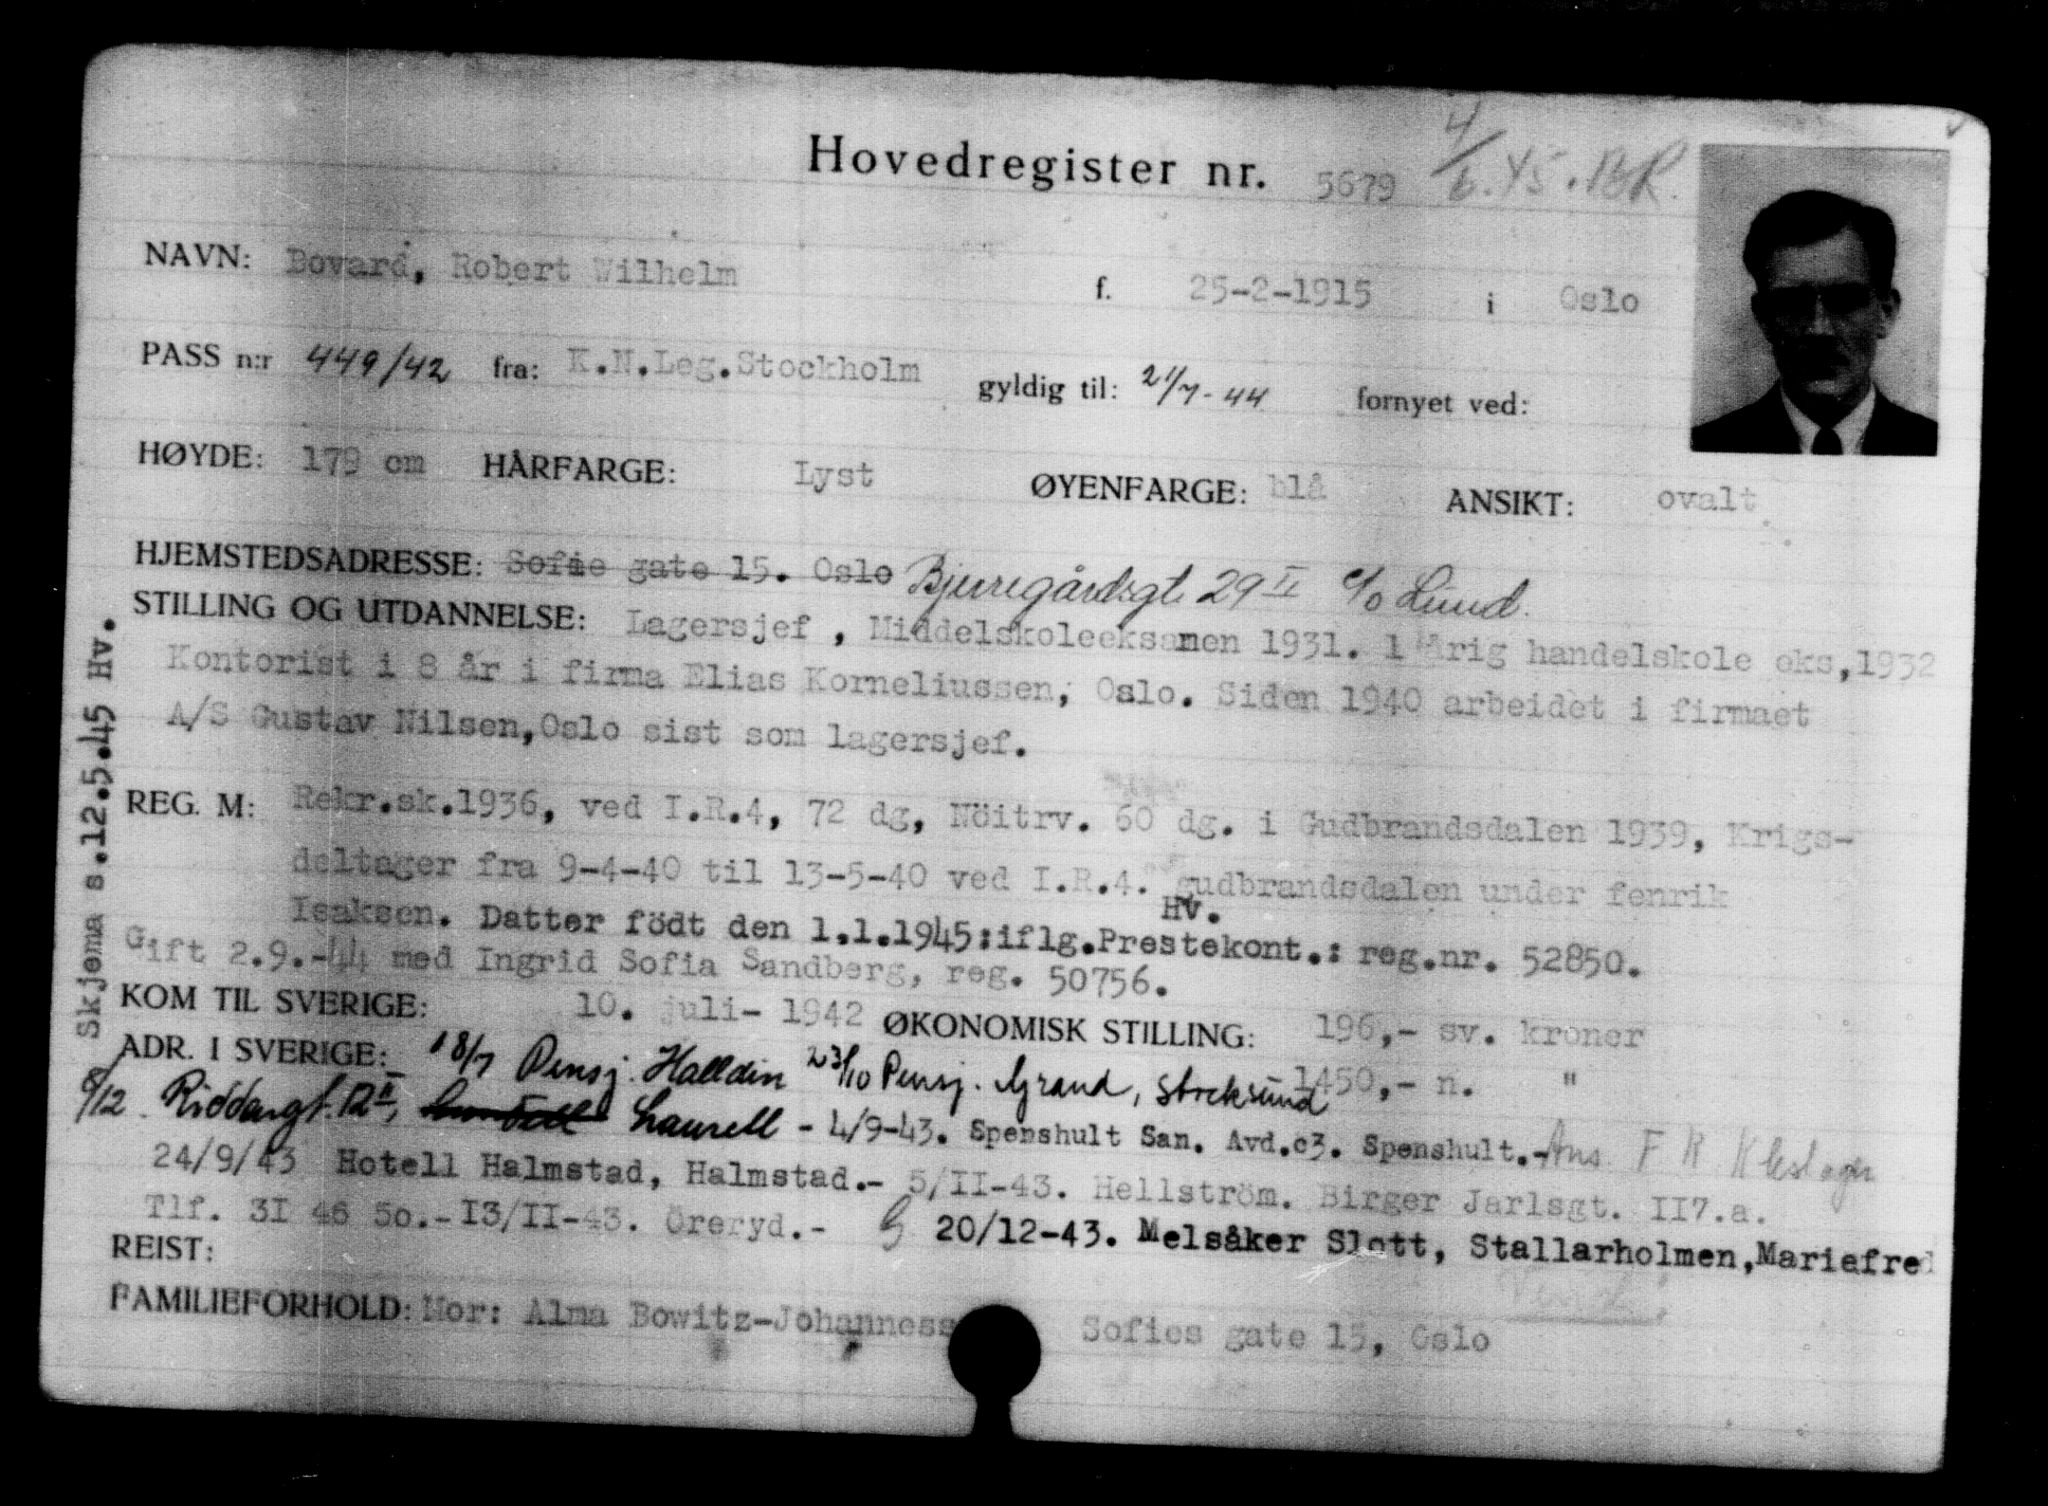 Hovedregister nr. 5679 4/6.45. BR.
NAVN: Bovard, Robert Wilhelm f. 25-2-1915 i Oslo
PASS n:r 449/42 fra: K.N.Leg.Stockholm gyldig til: 21/7-44 fornyet ved:
HØYDE: 179 cm HÅRFARGE: Lyst ØYENFARGE: blå ANSIKT: ovalt
HJEMSTEDSADRESSE: Sofie gate 15. Oslo Bjerregårdsgt. 29 II c/o Lund.
STILLING OG UTDANNELSE: Lagersjef , Middelskoleeksamen 1931. 1 årig handelskole eks,1932
Kontorist i 8 år i firma Elias Korneliussen, Oslo. Siden 1940 arbeidet i firmaet
A/S Gustav Nilsen,Oslo sist som lagersjef.
REG. M: Rekr.sk.1936, ved I.R.4, 72 dg, Nöitrv. 60 dg. i Gudbrandsdalen 1939, Krigs-
deltager fra 9-4-40 til 13-5-40 ved I.R.4. gudbrandsdalen under fenrik
Isaksen. Datter född den 1.1.1945:iflg.Prestekont.: reg.nr. 52850.
Hv.
Gift 2.9.-44 med Ingrid Sofia Sandberg, reg. 50756.
KOM TIL SVERIGE: 10. juli- 1942 ØKONOMISK STILLING: 196,- sv. kroner
ADR. I SVERIGE: 18/7 Pensj. Halldin 23/10 Pensj. Grand, Stocksund 1450,- n. "
8/12. Riddargt. 12 II, Laurell - 4/9-43. Spenshult San. Avd.c3. Spenshult.-
24/9/43 Hotell Halmstad, Halmstad.- 5/II-43. Hellström. Birger Jarlsgt. II7.a.
Tlf. 3I 46 5o.-I3/II-43. Öreryd.- G 20/12-43. Melsåker Slott, Stallarholmen,Mariefred
REIST:
FAMILIEFORHOLD: Mor: Alma Bowitz-Johanness Sofies gate 15, Oslo
Skjema s.12.5.45 Hv.